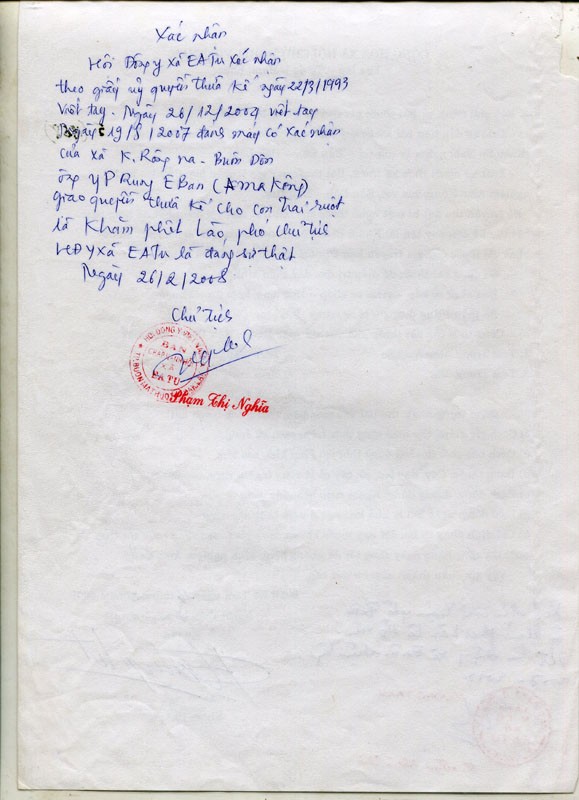 Xác nhận
Hội Đông y xã EATu xác nhận
theo giấy uỷ quyền thừa kế ngày 22/3/1993
viết tay. Ngày 26/12/2004 viết tay
Ngày 19/5/2007 đánh máy có xác nhận
của xã K. Rông na - Buôn Đôn
ông YP Rung EBan (AMa Kông)
giao quyền thừa kế cho con trai ruột
là Khăm phết Lào, phó chủ tịch
HĐY xã EATu là đúng sự thật
Ngày 26/2/2008
Chủ tịch
HỘI ĐÔNG Y
BAN
CHẤP HÀNH
XÃ
EA TU
Phạm Thị Nghĩa